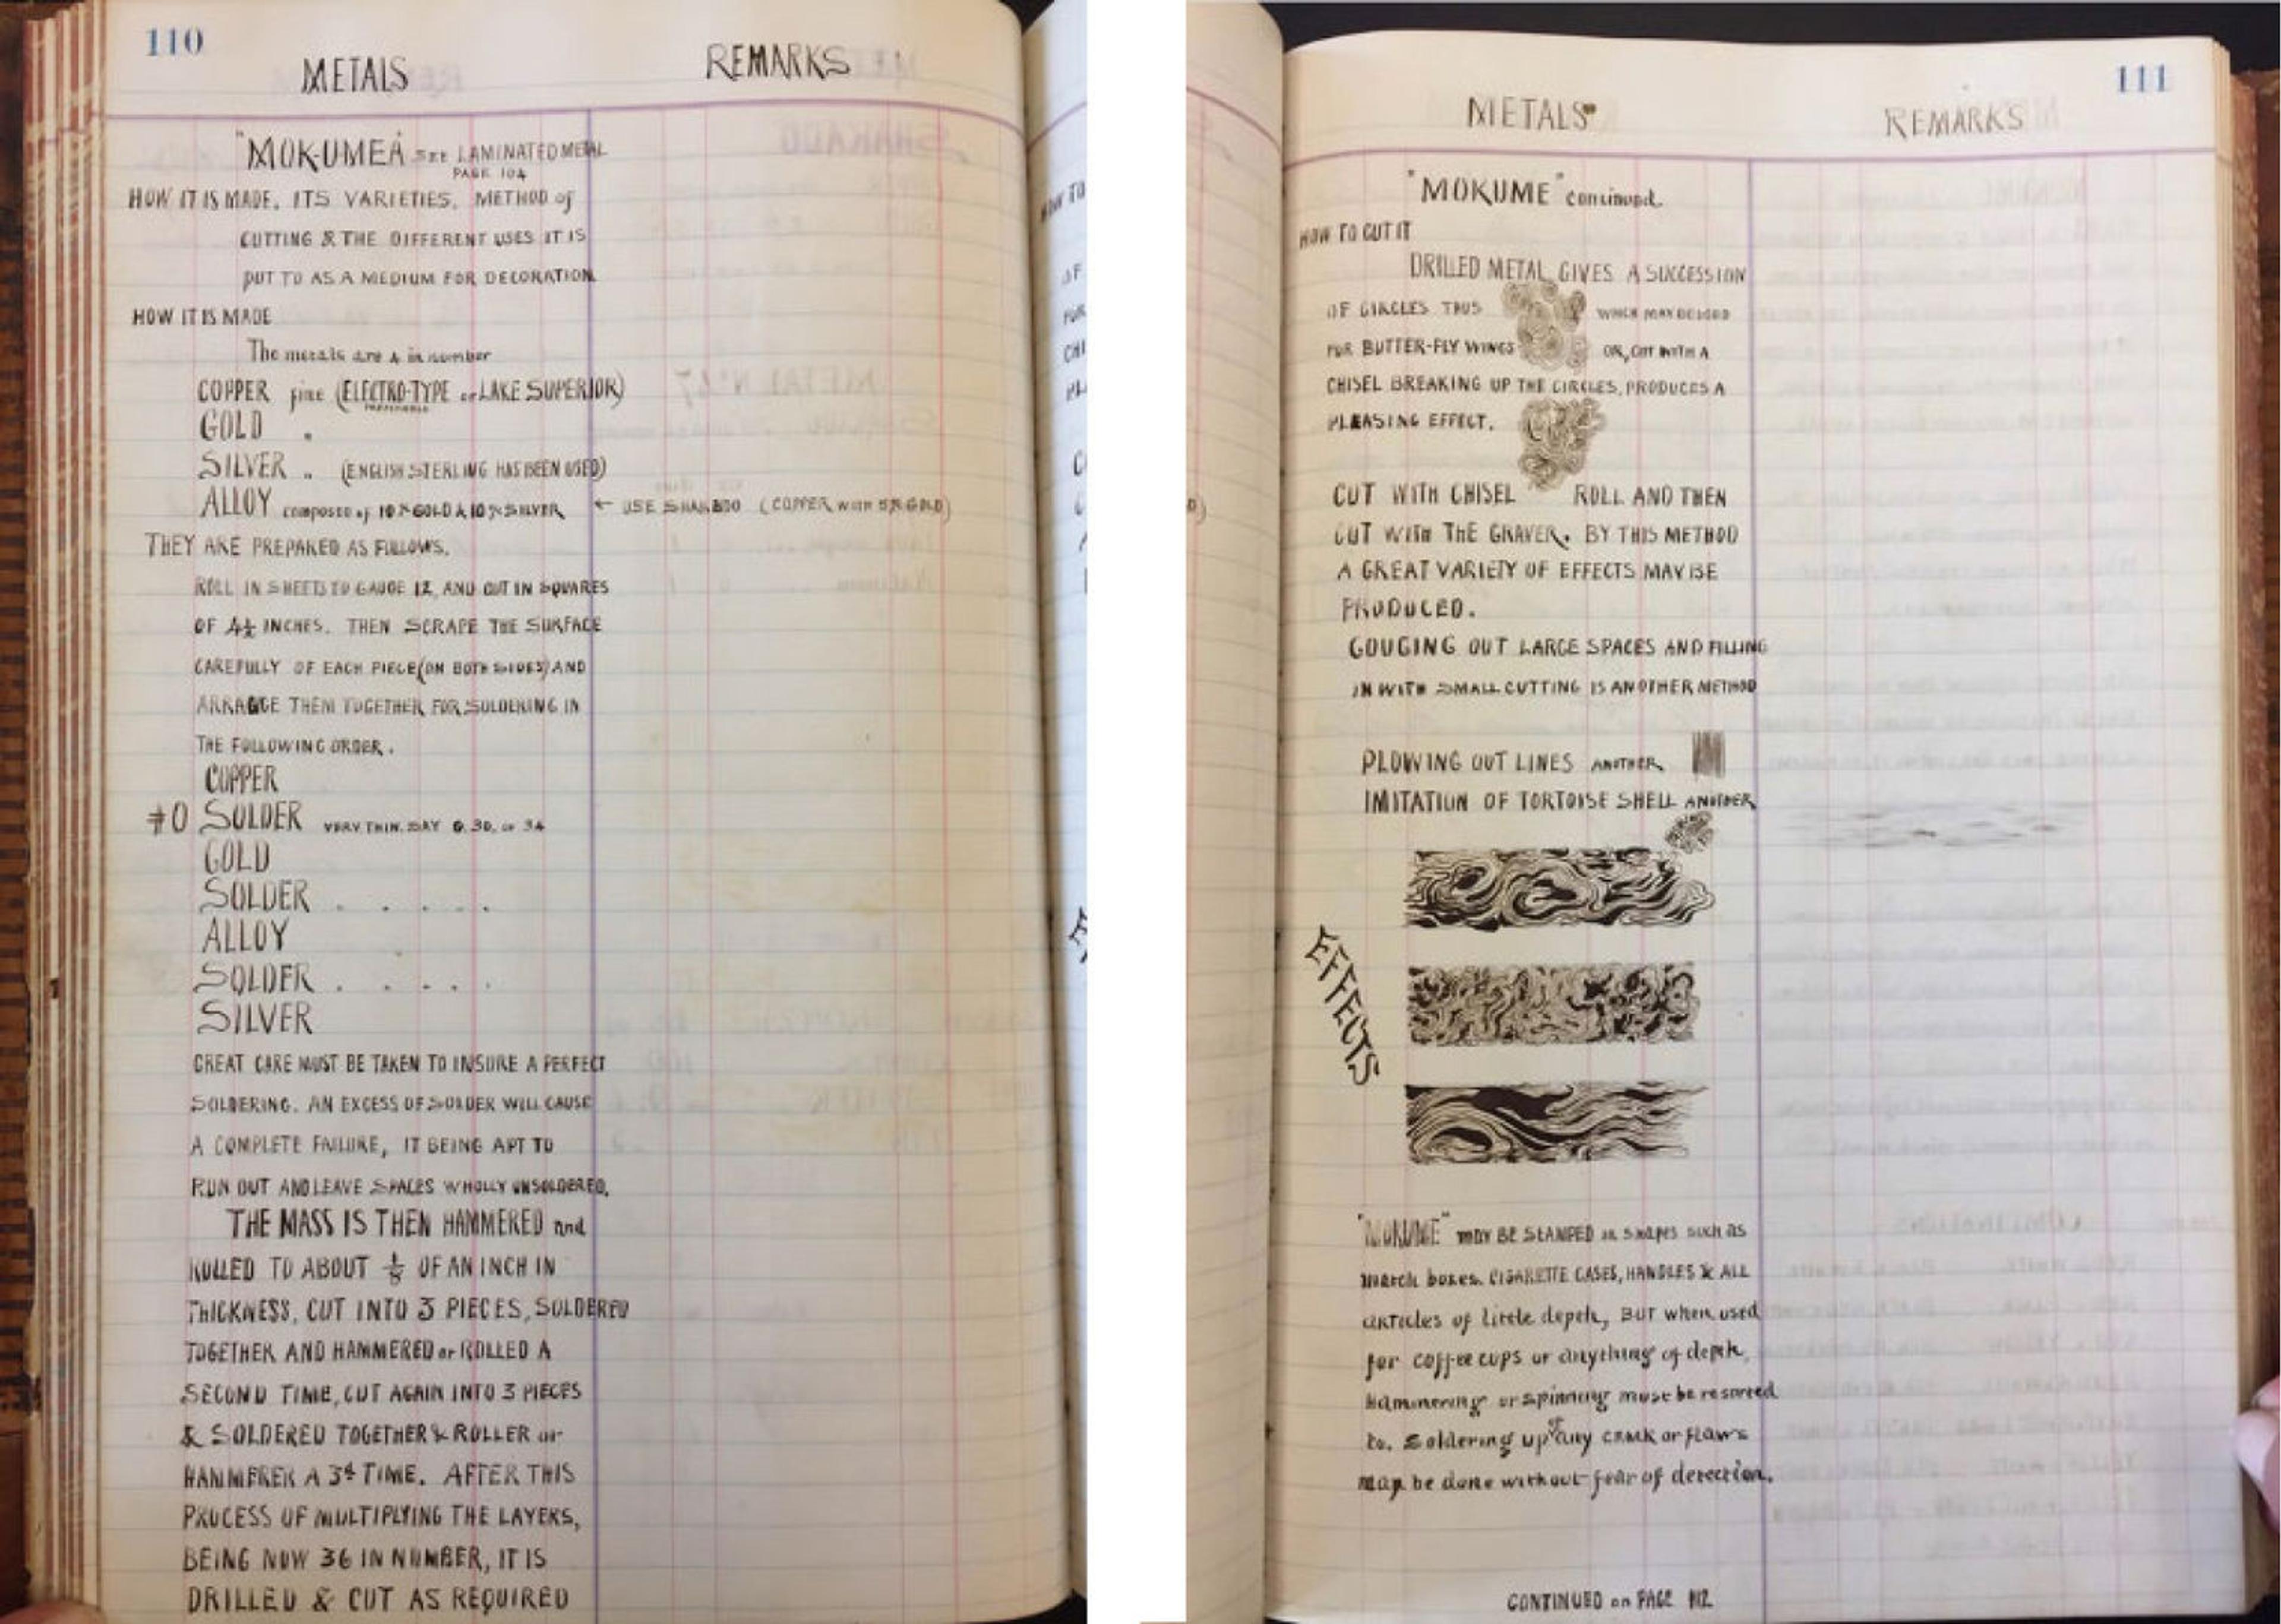 110
METALS
REMARKS
"MOKUMEA" SEE LAMINATED METAL
PAGE 104
HOW IT IS MADE. ITS VARIETIES. METHOD of
CUTTING & THE DIFFERENT USES IT IS
PUT TO AS A MEDIUM FOR DECORATION
HOW IT IS MADE
The metals are 4 in number
COPPER fine (ELECTRO-TYPE or LAKE SUPERIOR)
GOLD "
SILVER " (ENGLISH STERLING HAS BEEN USED)
ALLOY composed of 10% GOLD & 10% SILVER ← USE SHAKUDO (COPPER with 5% GOLD)
THEY ARE PREPARED AS FOLLOWS.
ROLL IN SHEETS TO GAUGE 12, AND CUT IN SQUARES
OF 4½ INCHES. THEN SCRAPE THE SURFACE
CAREFULLY OF EACH PIECE (ON BOTH SIDES) AND
ARRAGGE THEM TOGETHER FOR SOLDERING IN
THE FOLLOWING ORDER.
COPPER
#0 SOLDER VERY THIN. SAY G. 30. or 34
GOLD
SOLDER . . . . .
ALLOY
SOLDER . . . . .
SILVER
GREAT CARE MUST BE TAKEN TO INSURE A PERFECT
SOLDERING. AN EXCESS OF SOLDER WILL CAUSE
A COMPLETE FAILURE, IT BEING APT TO
RUN OUT AND LEAVE SPACES WHOLLY UNSOLDERED.
THE MASS IS THEN HAMMERED and
ROLLED TO ABOUT ⅛ OF AN INCH IN
THICKNESS, CUT INTO 3 PIECES, SOLDERED
TOGETHER AND HAMMERED or ROLLED A
SECOND TIME, CUT AGAIN INTO 3 PIECES
& SOLDERED TOGETHER & ROLLER or
HAMMERER A 3d TIME. AFTER THIS
PROCESS OF MULTIPLYING THE LAYERS,
BEING NOW 36 IN NUMBER, IT IS
DRILLED & CUT AS REQUIRED
111
METALS
REMARKS
"MOKUME" continued.
HOW TO CUT IT
DRILLED METAL GIVES A SUCCESSION
OF CIRCLES THUS WHICH MAY BE USED
FOR BUTTER-FLY WINGS OR, CUT WITH A
CHISEL BREAKING UP THE CIRCLES, PRODUCES A
PLEASING EFFECT.
CUT WITH CHISEL ROLL AND THEN
CUT WITH THE GRAVER. BY THIS METHOD
A GREAT VARIETY OF EFFECTS MAY BE
PRODUCED.
GOUGING OUT LARGE SPACES AND FILLING
IN WITH SMALL CUTTING IS ANOTHER METHOD
PLOWING OUT LINES ANOTHER
IMITATION OF TORTOISE SHELL ANOTHER
EFFECTS
"MOKUME" may BE STAMPED in shapes such as
match boxes. CIGARETTE CASES, HANDLES & ALL
articles of little depth, BUT when used
for coffee cups or anything of depth,
Hammering or spinning must be resorted
to. Soldering up of any crack or flaws
may be done without fear of detection.
CONTINUED on PAGE 112